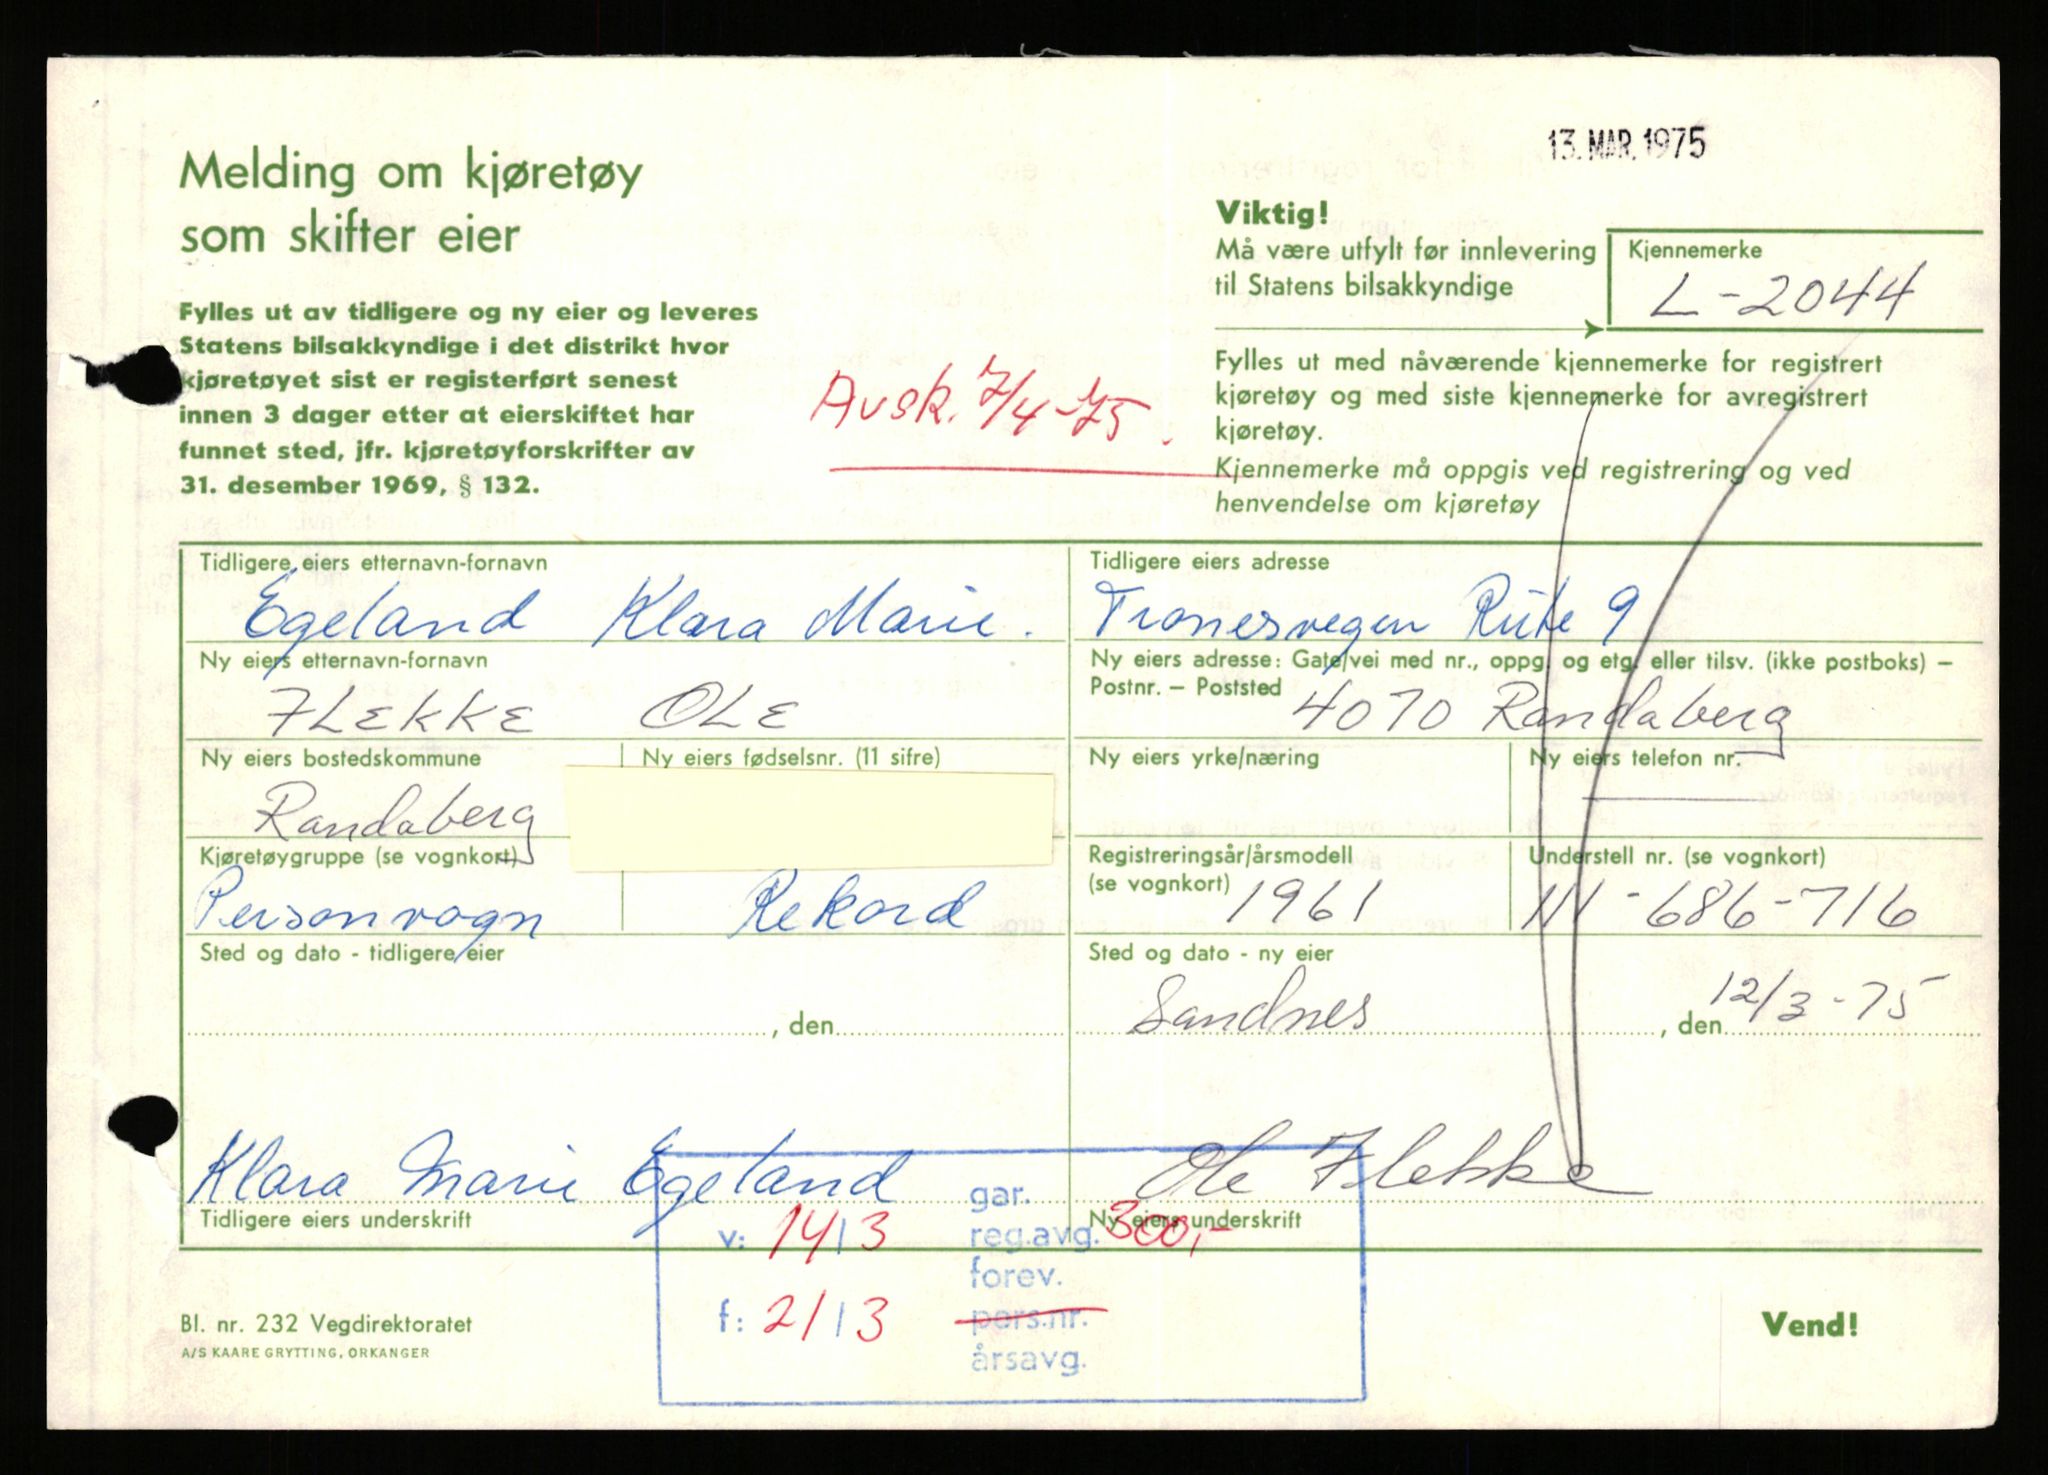 13. MAR. 1975
Melding om kjøretøy
som skifter eier
Viktig!
Må være utfylt før innlevering
til Statens bilsakkyndige
Kjennemerke
L-2044
Fylles ut av tidligere og ny eier og leveres
Statens bilsakkyndige i det distrikt hvor
kjøretøyet sist er registerført senest
innen 3 dager etter at eierskiftet har
funnet sted, jfr. kjøretøyforskrifter av
31. desember 1969, § 132.
Avsk. 7/4-75.
Fylles ut med nåværende kjennemerke for registrert
kjøretøy og med siste kjennemerke for avregistrert
kjøretøy.
Kjennemerke må oppgis ved registrering og ved
henvendelse om kjøretøy
Tidligere eiers etternavn-fornavn
Egeland Klara Marie.
Tidligere eiers adresse
Tronesvegen Rute 9
Ny eiers etternavn-fornavn
FLEKKE OLE
Ny eiers adresse: Gate/vei med nr., oppg. og etg. eller tilsv. (ikke postboks) –
Postnr. – Poststed
4070 Randaberg
Ny eiers bostedskommune
Randaberg
Ny eiers fødselsnr. (11 sifre)
Ny eiers yrke/næring
Ny eiers telefon nr.
Kjøretøygruppe (se vognkort)
Personvogn
Rekord
Registreringsår/årsmodell
(se vognkort)
1961
Understell nr. (se vognkort)
-686-716
Sted og dato - tidligere eier
, den
Sted og dato - ny eier
Sandnes , den 12/3-75
Klara Marie Egeland
Tidligere eiers underskrift
Ole Flekke
Ny eiers underskrift
gar.
v: 14/3 reg.avg. 300,-
forev.
f: 2/13 pers.nr.
årsavg.
Bl. nr. 232 Vegdirektoratet
A/S KAARE GRYTTING, ORKANGER
Vend!